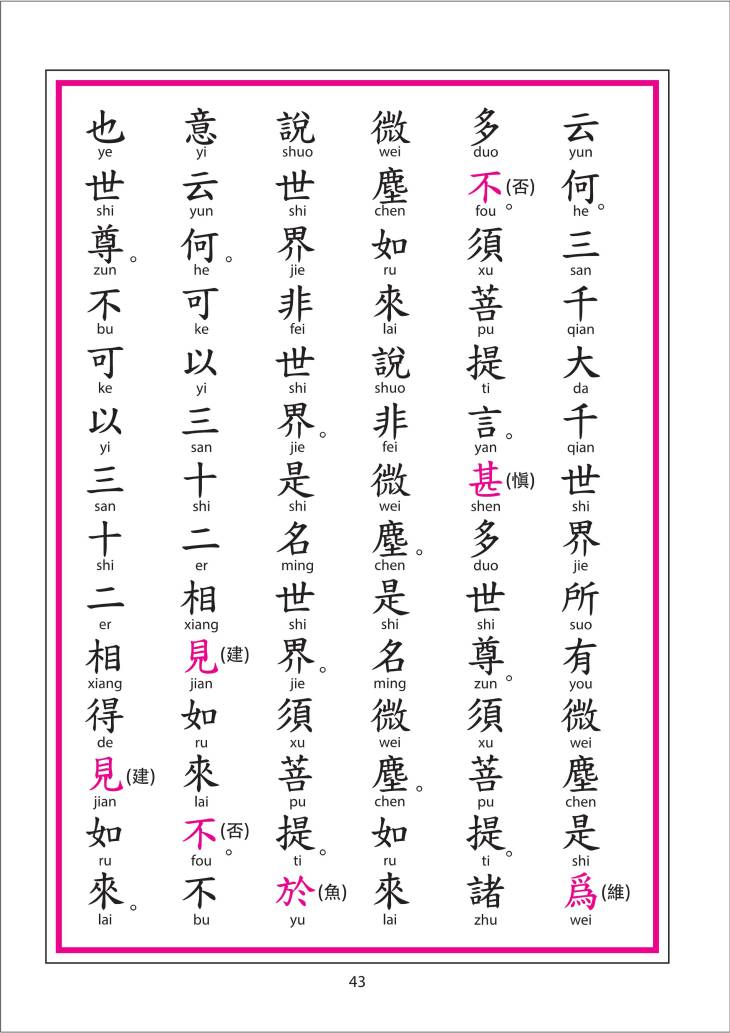 云何。三千大千世界所有微塵是爲(維)
yun he san qian da qian shi jie suo you wei chen shi wei
多不(否)。須菩提言。甚(慎)多世尊。須菩提。諸
duo fou xu pu ti yan shen duo shi zun xu pu ti zhu
微塵如來說非微塵。是名微塵。如來
wei chen ru lai shuo fei wei chen shi ming wei chen ru lai
說世界非世界。是名世界。須菩提。於(魚)
shuo shi jie fei shi jie shi ming shi jie xu pu ti yu
意云何。可以三十二相見(建)如來不(否)。不
yi yun he ke yi san shi er xiang jian ru lai fou bu
也世尊。不可以三十二相得見(建)如來。
ye shi zun bu ke yi san shi er xiang de jian ru lai
43